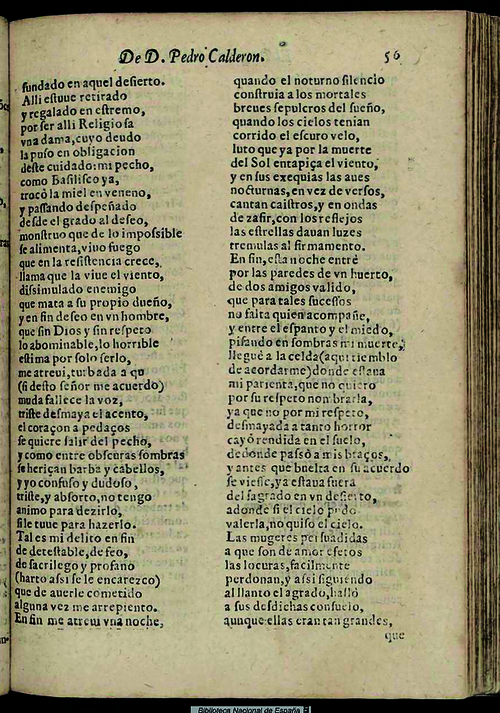 De D. Pedro Calderon. 56
fundado en aquel desierto.
Alli estuue retirado
y regalado en estremo,
por ser alli Religiosa
vna dama, cuyo deudo
la puso en obligacion
deste cuidado: mi pecho,
como Basilisco ya,
trocò la miel en veneno,
y passando despeñado
desde el grado al deseo,
monstruo que de lo impossible
se alimenta, viuo fuego
que en la resistencia crece,
llama que la viue el viento,
dissimulado enemigo
que mata a su propio dueño,
y en fin deseo en vn hombre,
que sin Dios y sin respeto
lo abominable, lo horrible
estima por solo serlo,
me atreui, turbada a qu
(si desto señor me acuerdo)
muda fallece la voz,
triste desmaya el acento,
el coraçon a pedaços
se quiere salir del pecho,
y como entre obscuras sombras
se heriçan barba y cabellos,
y yo confuso y dudoso,
triste, y absorto, no tengo
animo para dezirlo,
si le tuue para hazerlo.
Tal es mi delito en fin
de detestable, de feo,
de sacrilego y profano
(harto assi se le encarezco)
que de auerle cometido
alguna vez me arrepiento.
En fin me atreui vna noche,
quando el noturno silencio
construia a los mortales
breues sepulcros del sueño,
quando los cielos tenian
corrido el escuro velo,
luto que ya por la muerte
del Sol entapiça el viento,
y en sus exequias las aues
nocturnas, en vez de versos,
cantan caistros, y en ondas
de zafir, con los reflejos
las estrellas dauan luzes
tremulas al firmamento.
En fin, esta noche entrè
por las paredes de vn huerto,
de dos amigos valido,
que para tales sucessos
no falta quien acompañe,
y entre el espanto y el miedo,
pisando en sombras mi muerte,
lleguè a la celda (aqui tiemblo
de acordarme) donde estaua
mi parienta, que no quiero
por su respeto nombrarla,
ya que no por mi respeto,
desmayada a tanto horror
cayò rendida en el suelo,
de donde passò a mis braços,
y antes que buelta en su acuerdo
se viesse, ya estaua fuera
del sagrado en vn desierto,
adonde si el cielo pudo
valerla, no quiso el cielo.
Las mugeres persuadidas
a que son de amor efetos
las locuras, facilmente
perdonan, y assi siguiendo
al llanto el agrado, hallò
a sus desdichas consuelo,
aunque ellas eran tan grandes,
que
Biblioteca Nacional de España